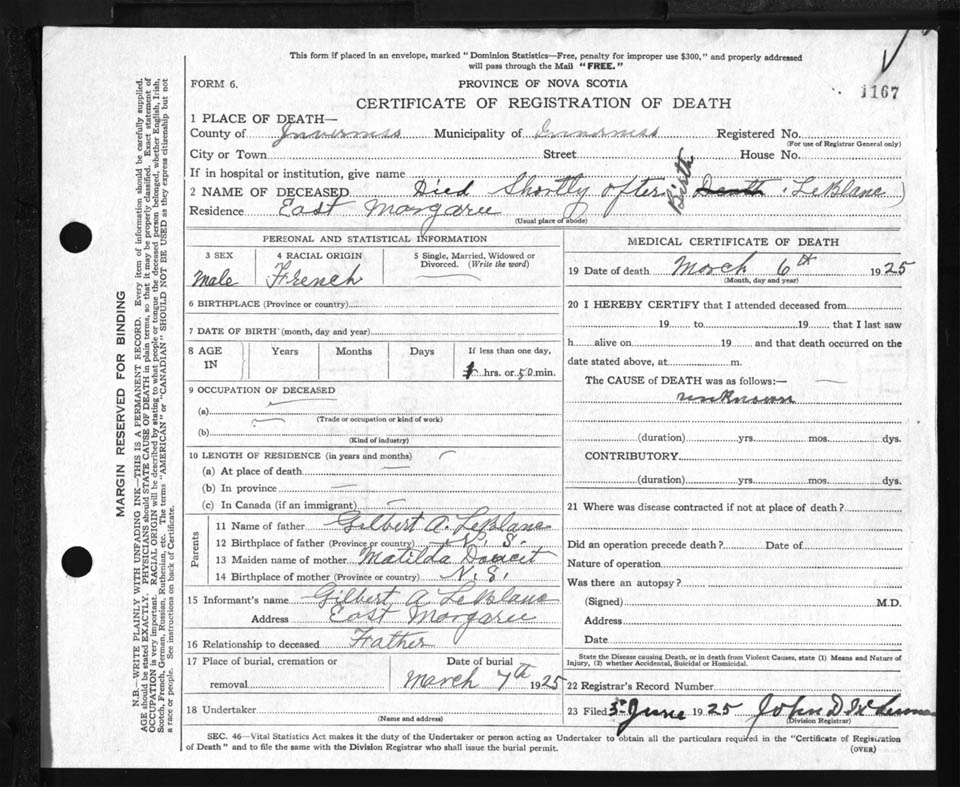 This form if placed in an envelope, marked "Dominion Statistics—Free, penalty for improper use $300," and properly addressed
will pass through the Mail "FREE."
FORM 6.
PROVINCE OF NOVA SCOTIA
1167
CERTIFICATE OF REGISTRATION OF DEATH
1 PLACE OF DEATH—
County of Inverness Municipality of Inverness Registered No.
(For use of Registrar General only)
City or Town Street House No.
If in hospital or institution, give name
2 NAME OF DECEASED Died Shortly after Birth Death LeBlanc
Residence East Margaree
(Usual place of abode)
PERSONAL AND STATISTICAL INFORMATION
3 SEX 4 RACIAL ORIGIN 5 Single, Married, Widowed or Divorced. (Write the word)
Male French
6 BIRTHPLACE (Province or country)
7 DATE OF BIRTH (month, day and year)
8 AGE IN Years Months Days If less than one day,
hrs. or 50 min.
9 OCCUPATION OF DECEASED
(a)
(Trade or occupation or kind of work)
(b)
(Kind of industry)
10 LENGTH OF RESIDENCE (in years and months)
(a) At place of death
(b) In province
(c) In Canada (if an immigrant)
Parents
11 Name of father Gilbert A. LeBlanc
12 Birthplace of father (Province or country) N. S.
13 Maiden name of mother Matilda Doucet
14 Birthplace of mother (Province or country) N. S.
15 Informant's name Gilbert A LeBlanc
Address East Margaree
16 Relationship to deceased Father
17 Place of burial, cremation or removal Date of burial
March 7th 1925
18 Undertaker
(Name and address)
MEDICAL CERTIFICATE OF DEATH
19 Date of death March 6th 1925
(Month, day and year)
20 I HEREBY CERTIFY that I attended deceased from
19 to 19 that I last saw
h alive on 19 and that death occurred on the
date stated above, at m.
The CAUSE OF DEATH was as follows:—
unknown
(duration) yrs. mos. dys.
CONTRIBUTORY
(duration) yrs. mos. dys.
21 Where was disease contracted if not at place of death?
Did an operation precede death? Date of
Nature of operation
Was there an autopsy?
(Signed) M.D.
Address
Date
State the Disease causing Death, or in death from Violent Causes, state (1) Means and Nature of
Injury, (2) whether Accidental, Suicidal or Homicidal.
22 Registrar's Record Number
23 Filed 5 June 1925 John D
(Division Registrar)
SEC. 46—Vital Statistics Act makes it the duty of the Undertaker or person acting as Undertaker to obtain all the particulars required in the "Certificate of Registration
of Death" and to file the same with the Division Registrar who shall issue the burial permit.
(OVER)
MARGIN RESERVED FOR BINDING
N.B.—WRITE PLAINLY WITH UNFADING INK—THIS IS A PERMANENT RECORD. Every item of information should be carefully supplied.
AGE should be stated EXACTLY. PHYSICIANS should STATE CAUSE OF DEATH in plain terms, so that it may be properly classified. Exact statement of
OCCUPATION is very important. RACIAL ORIGIN will be described by stating to what people or tongue the deceased person belonged, whether English, Irish,
Scotch, French, German, Russian, Ruthenian, etc. The terms "AMERICAN" or "CANADIAN" SHOULD NOT BE USED as they express citizenship but not
a race or people. See instructions on back of Certificate.